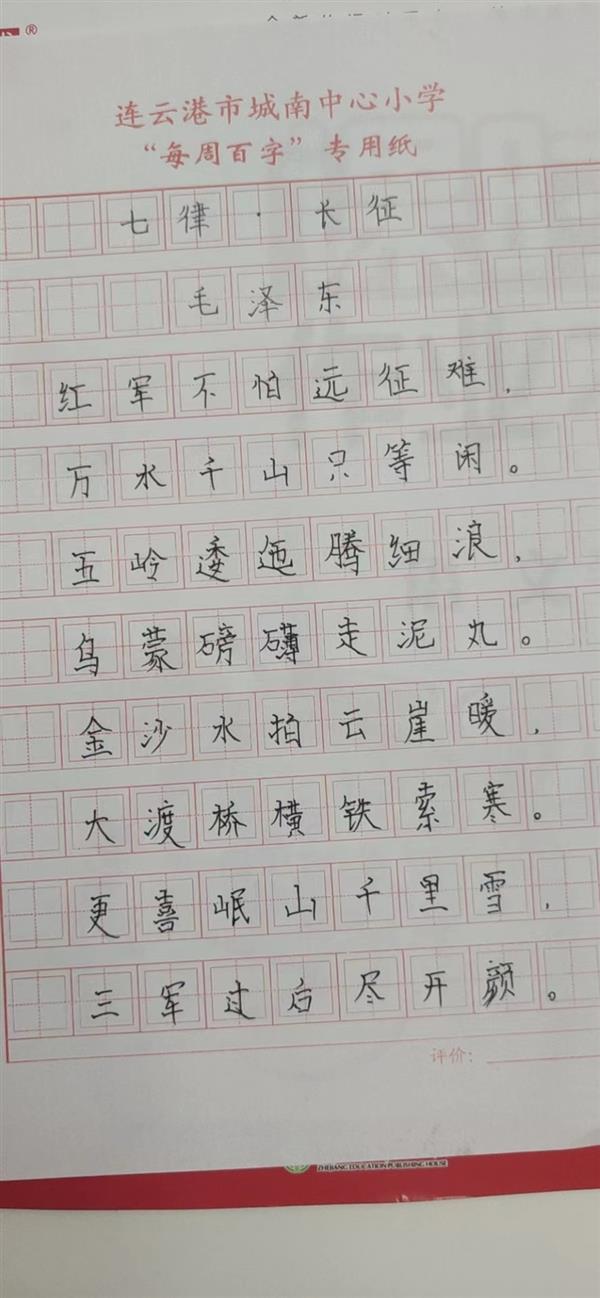 连云港市城南中心小学
“每周百字”专用纸
七律·长征
毛泽东
红军不怕远征难，
万水千山只等闲。
五岭逶迤腾细浪，
乌蒙磅礴走泥丸。
金沙水拍云崖暖，
大渡桥横铁索寒。
更喜岷山千里雪，
三军过后尽开颜。
评价：
ZHEJIANG EDUCATION PUBLISHING HOUSE